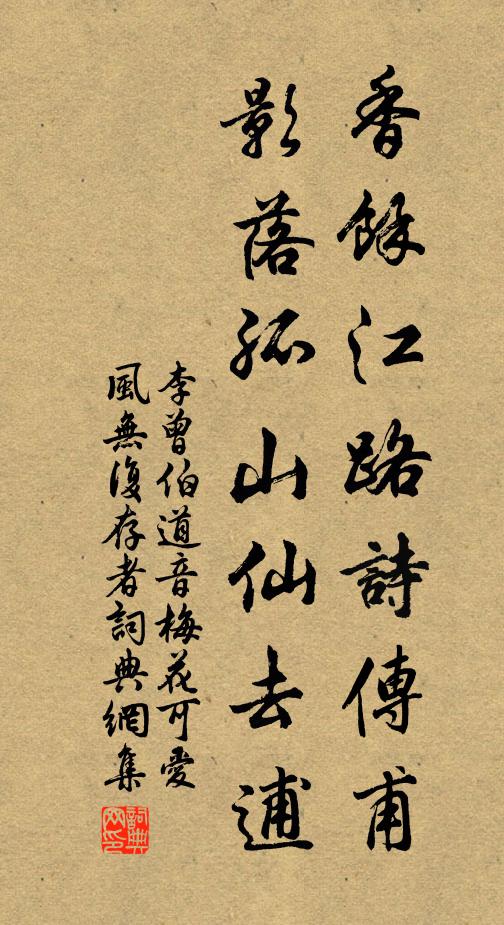 香餘江路詩傳甫
影落孤山仙去逋
李曾伯道音梅花可愛
風無復存者詞典網集
詞典网印